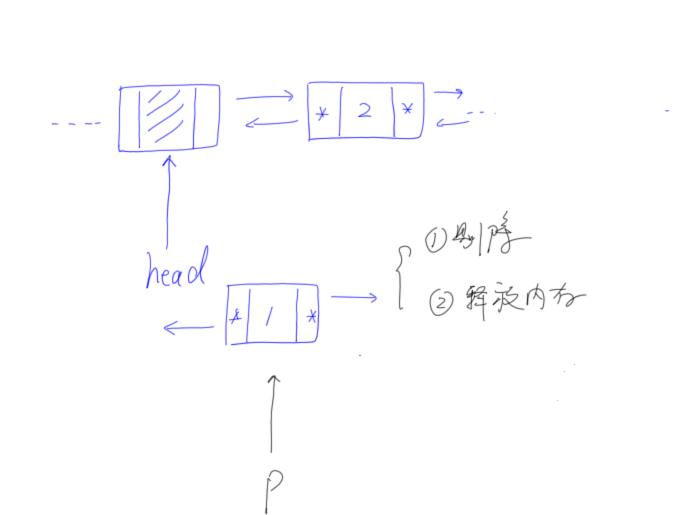 * 2 *
head
① 删除
* 1 *
② 释放内存
p